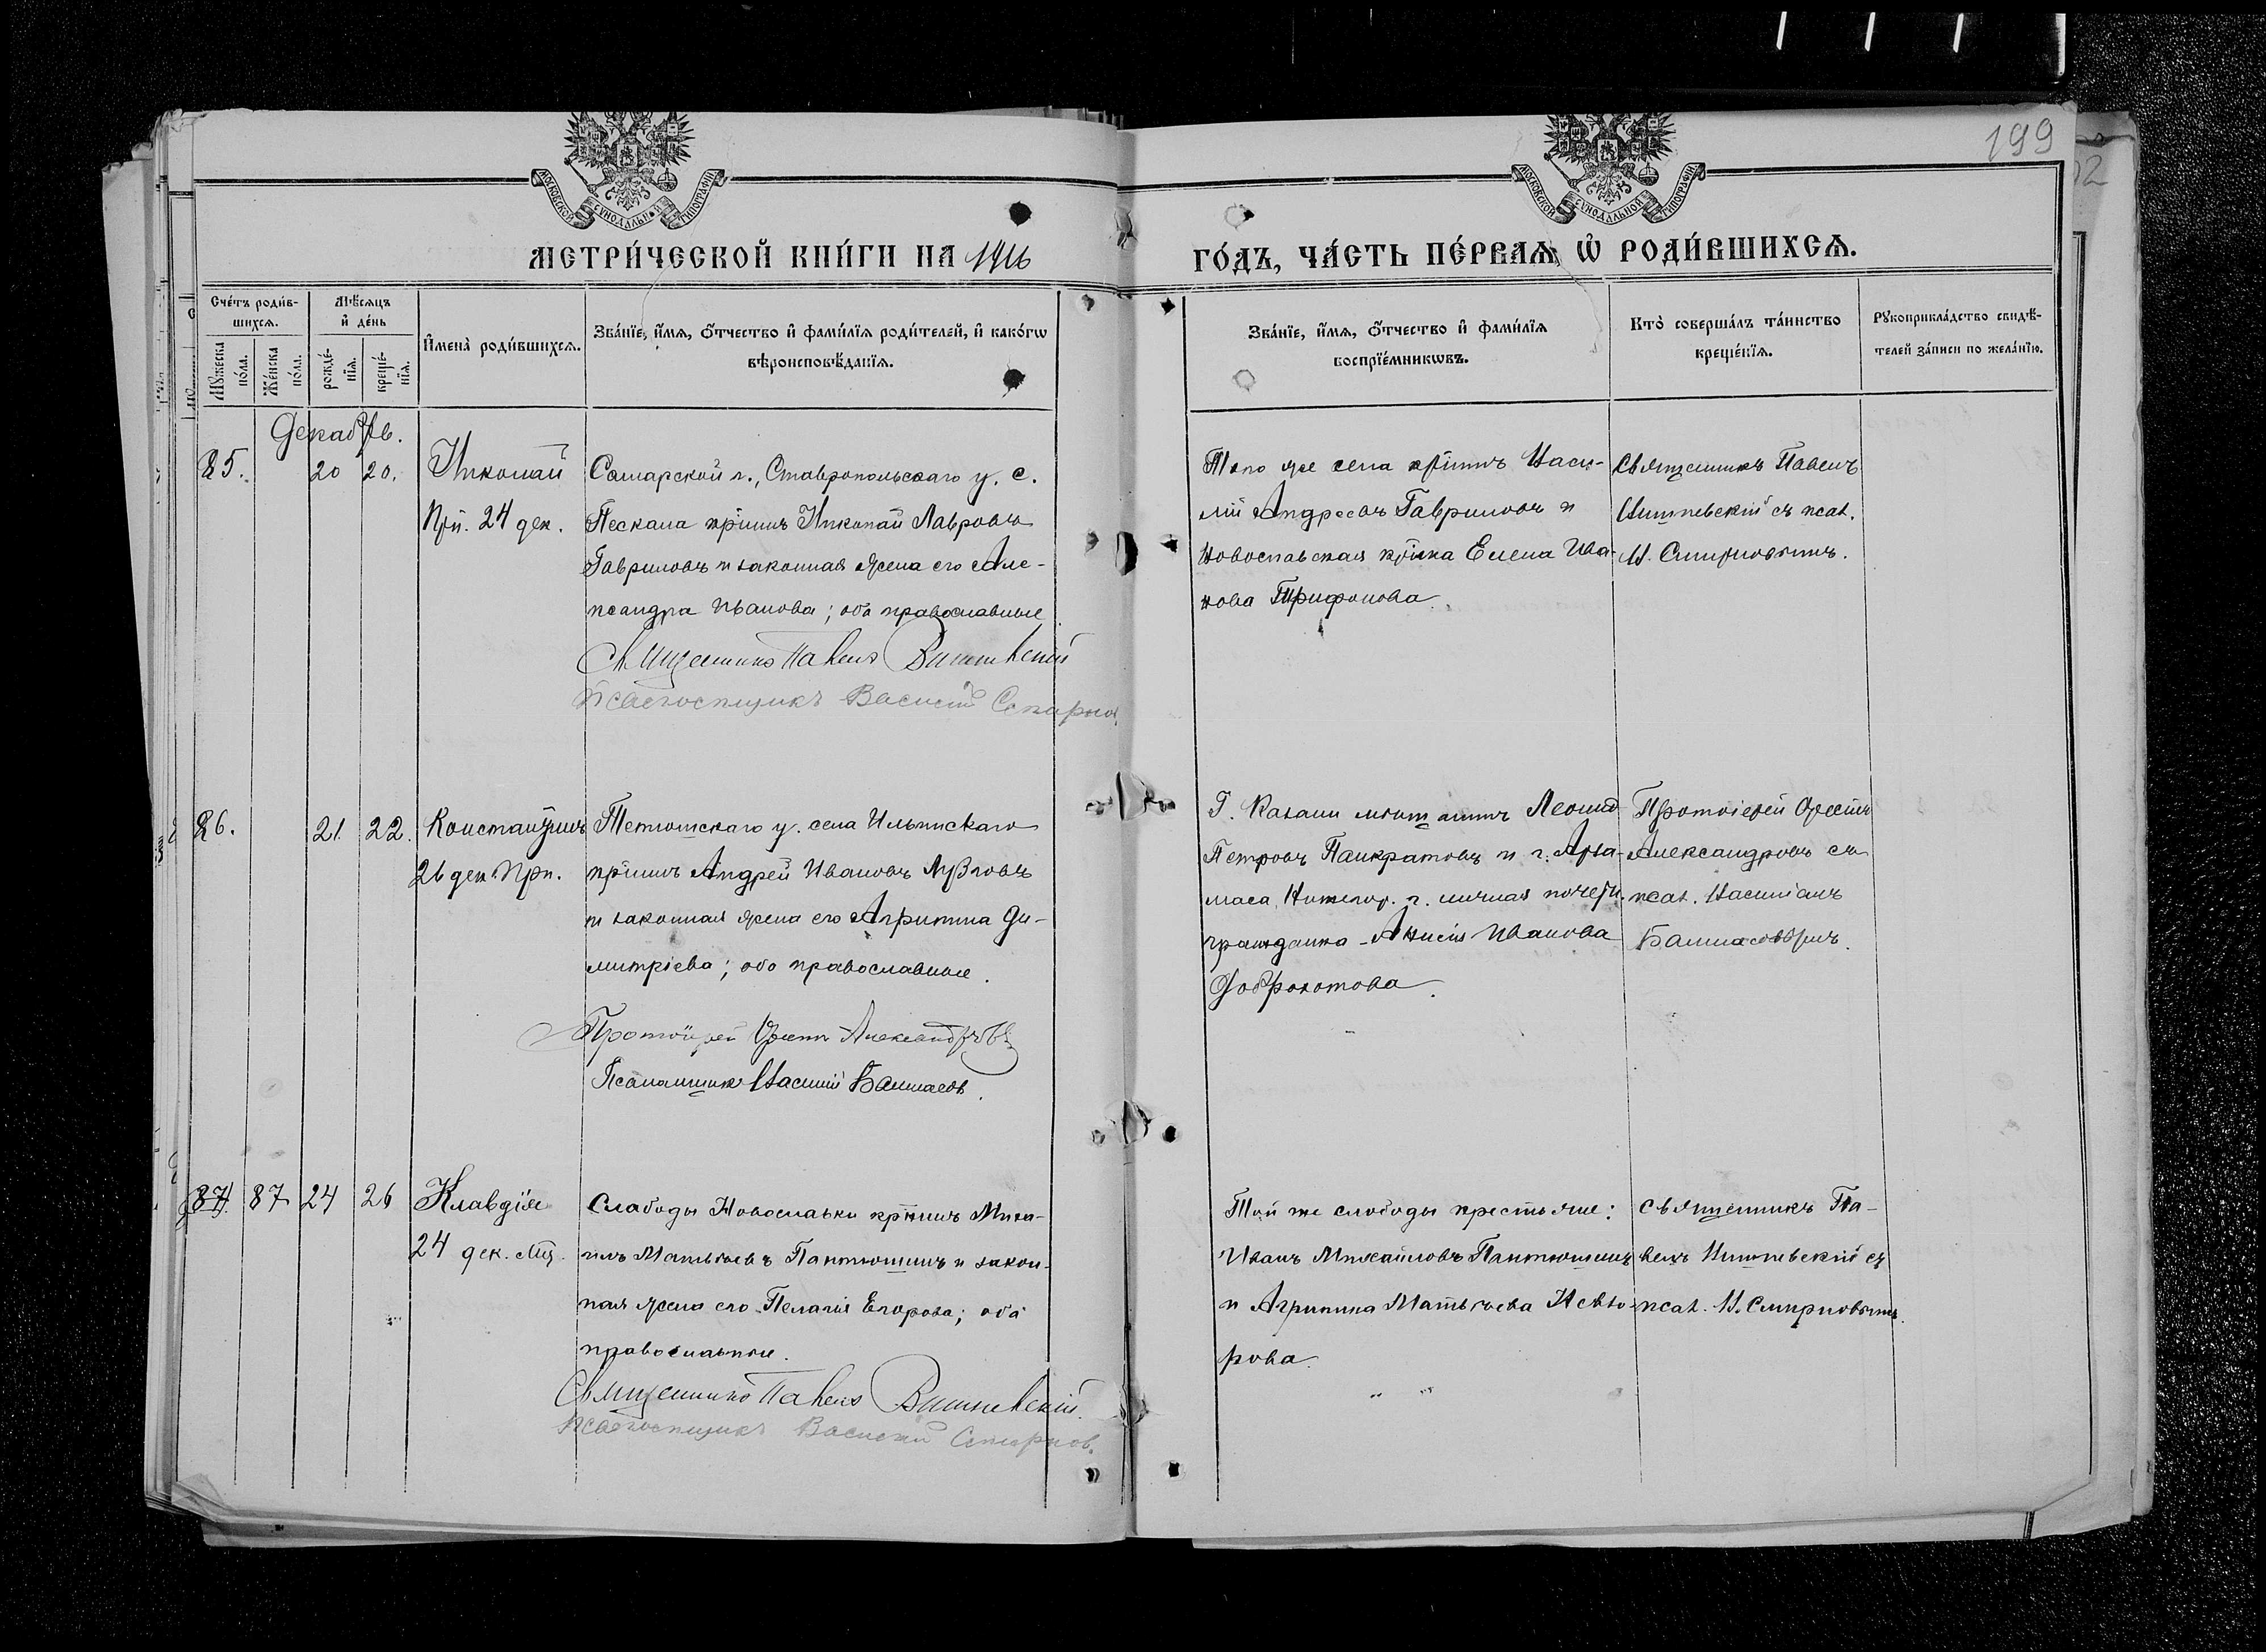 199
МОСКОВСКОЙ СУНОДАЛЬНОЙ ТИПОГРАФІИ
МОСКОВСКОЙ СУНОДАЛЬНОЙ ТИПОГРАФІИ
МЕТРИ́ЧЕСКОЙ КНИ́ГИ НА 1916
ГО́ДЪ, ЧА́СТЬ ПЕ́РВАѦ, Ѡ҆ РОДИ́ВШИХСѦ.
Сче́тъ роди́в-
шихсѧ.
Мѣ́сѧцъ
и҆ де́нь
Мꙋ́жеска
по́ла.
Же́нска
по́ла.
рожде́-
нїѧ.
креще́-
нїѧ.
И҆мена̀ роди́вшихсѧ.
Зва́нїе, и҆́мѧ, ѻ҆́тчество и҆ фами́лїѧ роди́телей, и҆ како́гѡ
вѣроисповѣ́данїѧ.
Зва́нїе, и҆́мѧ, ѻ҆́тчество и҆ фами́лїѧ
воспрїе́мникѡвъ.
Кто̀ соверша́лъ та́инство
креще́нїѧ.
Рꙋкоприкла́дство свидѣ́-
телей за́писи по жела́нїю.
Декабрь.
85. 20 20. Николай
При. 24 дек.
Самарской г., Ставропольскаго у. с.
Пескала кр̃нинъ Николай Лавровъ
Гавриловъ и законная жена его Але-
ксандра Иванова; оба православные
Священникъ Павелъ Вишневскій
Псаломщикъ Василій Смирнов
Того же села кр̃нинъ Васи-
лій Андреевъ Гавриловъ и
Новославская кр̃нка Елена Ива-
нова Трифонова.
Священникъ Павелъ
Вишневскій съ псал.
В. Смирновымъ.
86. 21. 22. Константинъ
26 дек. При.
Тетюшскаго у. села Ильинскаго
кр̃нинъ Андрей Ивановъ
и законная жена его Агрипина Ди-
митріева; оба православные.
Протоіерей Орестъ Александровъ
Псаломщик Василій Балмасов.
Г. Казани мѣщанинъ Леонид
Петровъ Панкратовъ и г. Арза-
маса, Нижегор. г. личная почетн.
гражданка Анисія Иванова
Доброхотова.
Протоіерей Орестъ
Александровъ съ
псал. Василіемъ
Балмасовымъ.
87. 87 24 26 Клавдія
24 дек.
Слободы Новославки кр̃нинъ Миха-
илъ Матвѣевъ Пантюшинъ и закон-
ная жена его Пелагія Егорова; оба
православные.
Священникъ Павелъ Вишневскій.
Псаломщикъ Василій Смирнов.
Той же слободы крестьяне:
Иванъ Михайловъ Пантюшинъ
и Агрипина Матвѣева Невзо-
рова.
Священникъ Па-
велъ Вишневскій съ
псал. В. Смирновымъ.